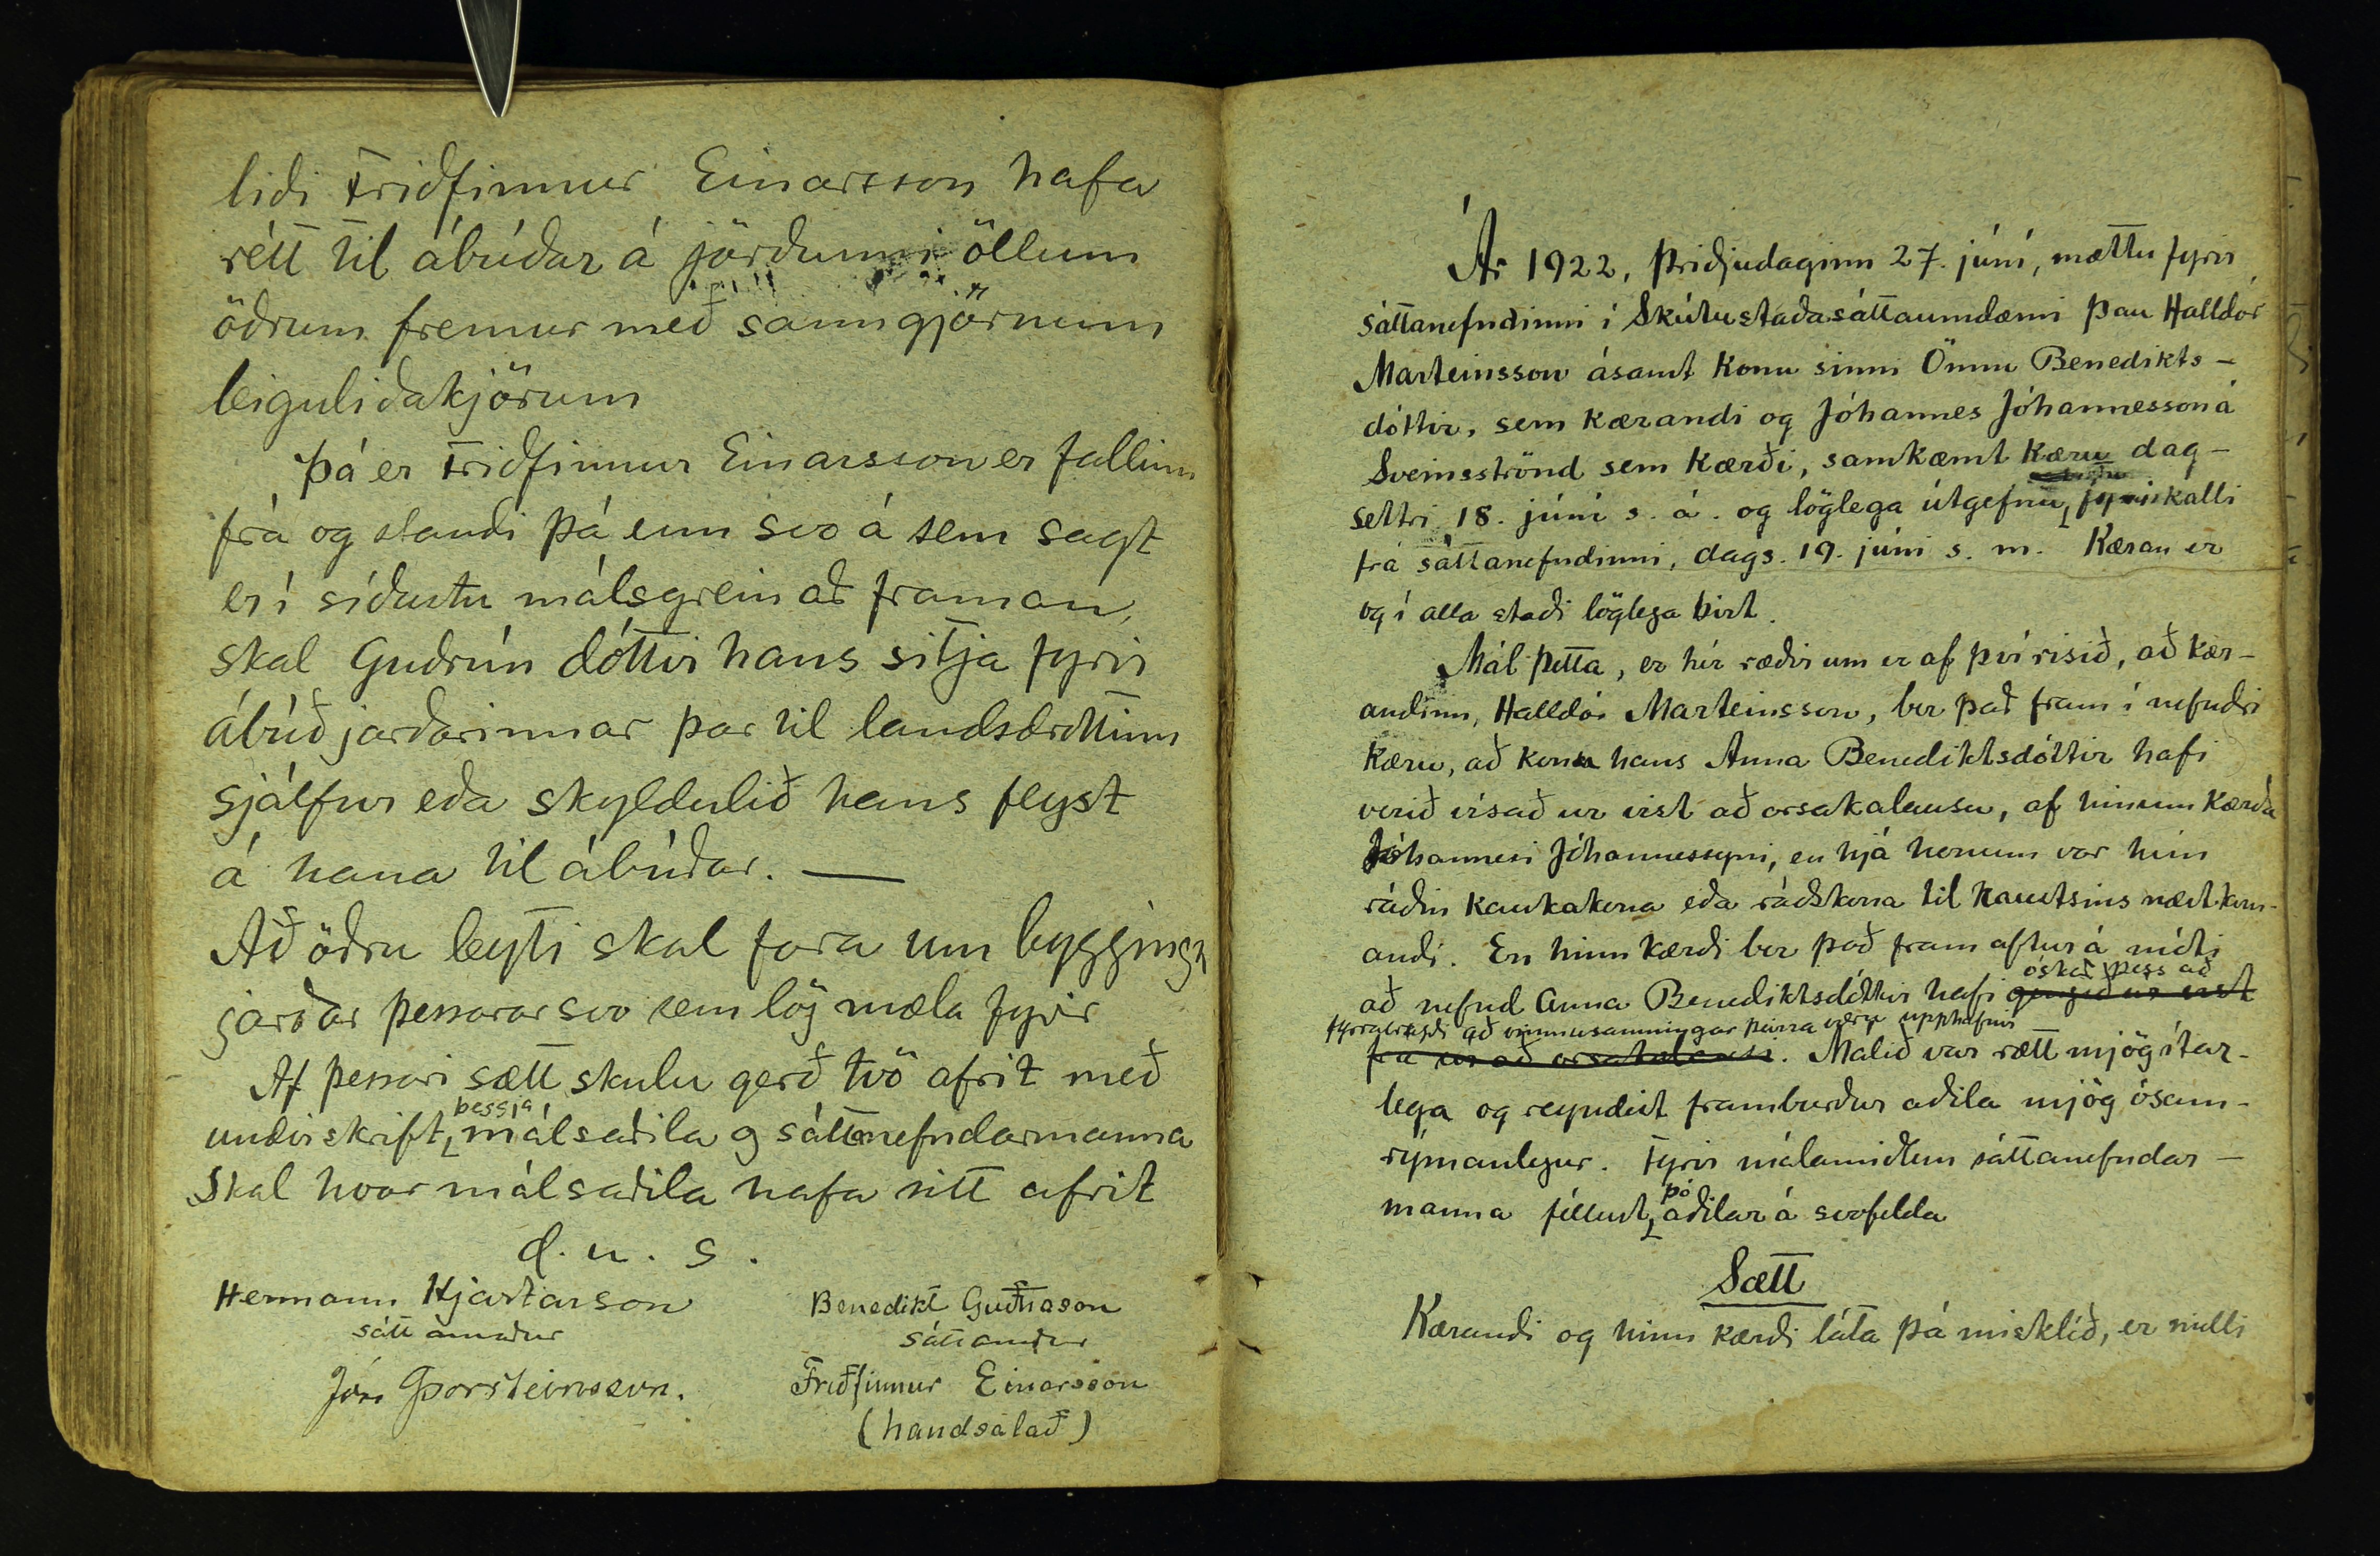 liði Friðfinnur Einarsson hafa
rétt til ábúðar á jörðunni öllum
öðrum fremur með sanngjörnum
leiguliðakjörum
Þá er Friðfinnur Einarsson er fallinn
frá og standi þá enn svo á sem sagt
er í síðustu málsgrein að framan,
skal Guðrún dóttir hans sitja fyrir
ábúð jarðarinnar þar til landsdrottinn
sjálfur eða skyldulið hans flyst
á hana til ábúðar. —
Að öðru leyti skal fara um byggingu
jarðar þessarar svo sem lög mæla fyrir
Af þessari sætt skulu gerð tvö afrit með
undirskrift þessja málsaðila og sáttanefndarmanna
Skal hvor málsaðila hafa sitt afrit
d. u. s.
Hermann Hjartarson
sáttamaður
Benedikt Guðnason
sáttamaður
Jón Þorsteinsson.
Friðfinnur Einarsson
(handsalað)
Ár 1922, þriðjudaginn 27. júní, mættu fyrir
sáttanefndinni í Skútustaðasáttaumdæmi þau Halldór
Marteinsson ásamt konu sinni Önnu Benedikts-
dóttir, sem kærandi og Jóhannes Jóhannesson á
Sveinsströnd sem kærði, samkæmt kæru dag-
settri 18. júní s. á. og löglega útgefnu fyrirkalli
frá sáttanefndinni, dags. 19. júní s. m. Kæran er
og í alla staði löglega birt.
Mál þetta, er hér ræðir um er af því risið, að kær-
andinn, Halldór Marteinsson, ber það fram í nefndri
kæru, að kona hans Anna Benediktsdóttir hafi
verið vísað ur vist að orsakalausu, af hinum kærða
Jóhannesi Jóhannessyni, en hjá honum var hún
ráðin kaukakona eða ráðskona til haustsins næstkom-
andi. En hinn kærði ber það fram aftur á móti
að nefnd Anna Benediktsdóttir hafi gengið úr vist óskað þess að
fyrrabragði að vinnusamningar þeirra væru upphafnir
frá sér að orsakalausu. Málið var rætt mjög ítar-
lega og reyndist framburður aðila mjög ósam-
rýmanlegur. Fyrir málamiðlun sáttanefndar-
manna féllust þó aðilar á svofelda
Sætt
Kærandi og hinn kærði láta þá misklíð, er milli